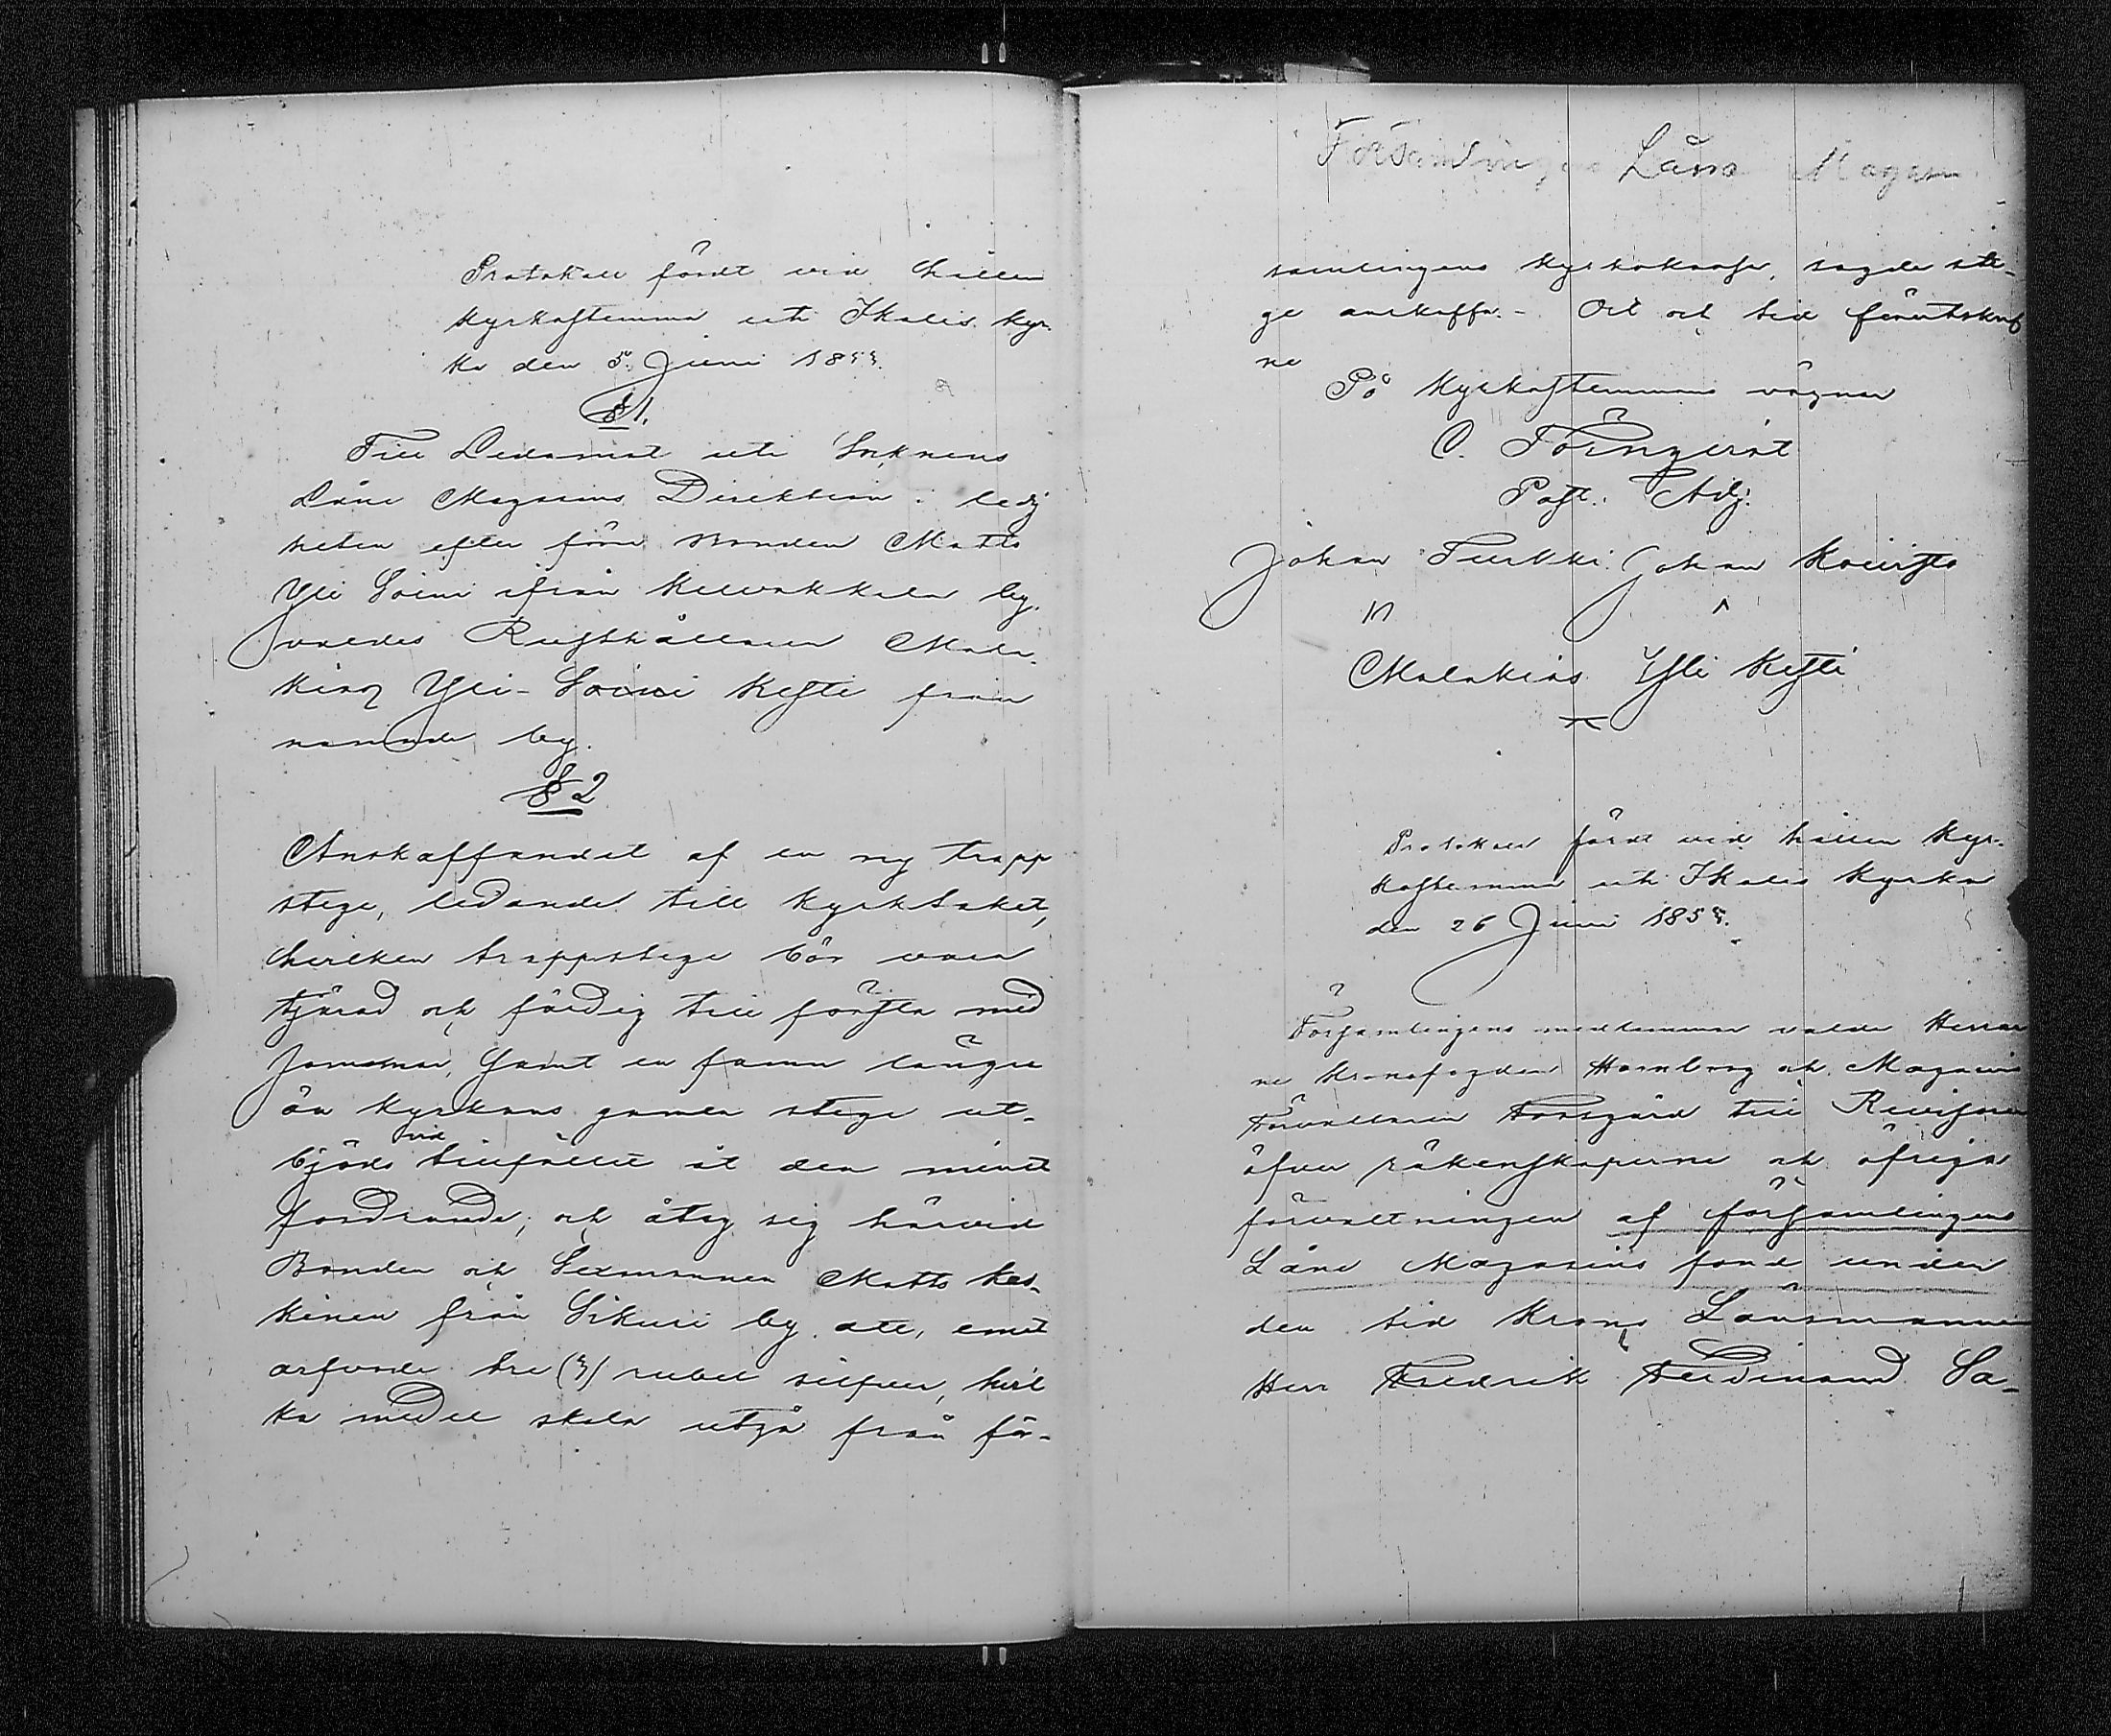 Protokoll fördt vid hållen
Kyrkostemma uti Ikalis kyr-
ka den 5. Juni 1853.
§ 1.
Till Ledamot uti Socknens
Låne Magasins Direktion i ledig
heten efter förre Bonden Matts
Yli Soini ifrån Kilvakkala by
valdes Rusthållaren Mala-
kias Yli-Soini Kesti från
nämnde by.
§ 2
Anskaffandet af en ny trapp
stege, ledande till kyrktaket,
hvilken trappstege bör vara
tjärad och färdig till första med
Sommar, samt en famn längre
än kyrkans gamla stege ut-
bjöds vid tillfället åt den minst
fordrande; och åtog sig härvid
Bonden och Sexmannen Matts Kos-
kinen från Sikuri by att, emot
arfvode tre (3) rubel silfver, hvil
ka medel skola utgå från för-
Församlingens Låne Magasin
samlingens kyrkokassa, sagde ste-
ge anskaffa. - Ort och tid förutskrif
ne
På Kyrkostemmans vägnar
C. Törnqvist
Past. Adj:
Johan Turkki. Johan Koivisto
Malakias Yli Kesti
Protokoll fördt vid hållen Kyr-
kostemma uti Ikalis Kyrka
den 26 Juni 1853.
Församlingens medlemmar valde Herrar
ne Kronofogden Hornborg och Magasins
Förvaltaren Forsgård till Revisorer
öfver räkenskaperne och öfriga
förvaltningen af församlingens
Låne Magasins fond under
den tid Krono Länsmannen
Herr Fredrik Ferdinand Sa-